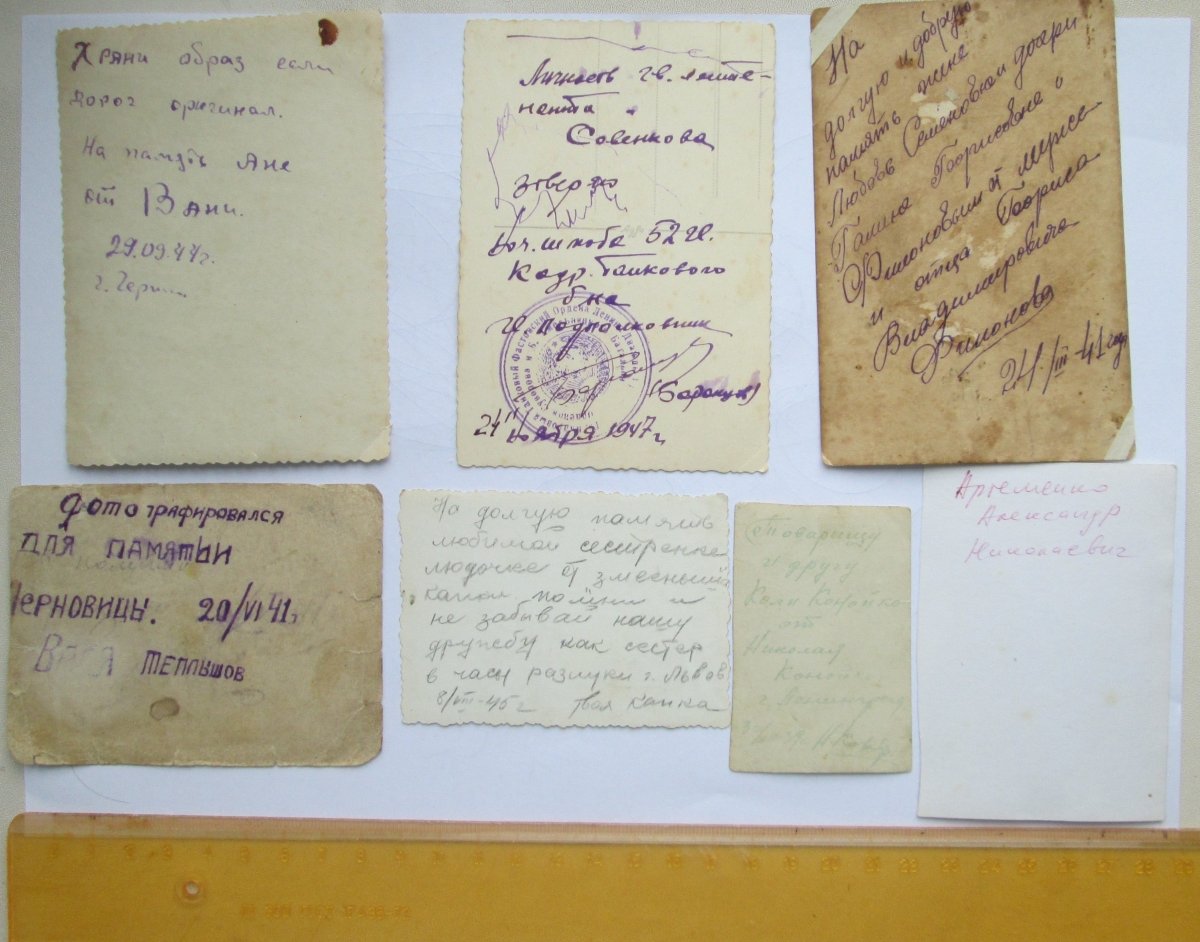 Храни образ если
дорог оригинал.
На память Ане
от Вани.
29.09.44г.
Личность гв. лейте-
нанта
Совенкова
Нач. штаба 52 гв.
Кадр. Танкового
б-на
гв подполковник
24" ноября 1947 г.
На
долгую и добрую
память жене
Любовь Семеновной дочери
Галине Борисовне
Филоновым от мужа
и отца Бориса
Владимировича
Филонова
24/III-41 год
Фотографировался
ДЛЯ ПАМЯТЫИ
ЧЕРНОВИЦЫ. 20/VI 41г
ВАСЯ ТЕПЛЫШОВ
На долгую память
любимой сестренке
людочке от
помни и
не забывай нашу
дружбу как сестер
в часы разлуки г. Львов
8/VIII-45 г твоя
Товарищу
и другу
Коли
от
Николая
Артеменко
Александр
Николаевич